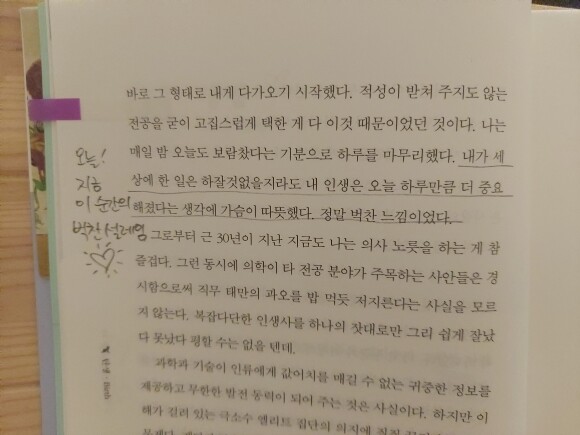 바로 그 형태로 내게 다가오기 시작했다. 적성이 받쳐 주지도 않는
전공을 굳이 고집스럽게 택한 게 다 이것 때문이었던 것이다. 나는
매일 밤 오늘도 보람찼다는 기분으로 하루를 마무리했다. 내가 세
상에 한 일은 하잘것없을지라도 내 인생은 오늘 하루만큼 더 중요
해졌다는 생각에 가슴이 따뜻했다. 정말 벅찬 느낌이었다.
오늘!
지금
이 순간의
벅찬 설레임
그로부터 근 30년이 지난 지금도 나는 의사 노릇을 하는 게 참
즐겁다. 그런 동시에 의학이 타 전공 분야가 주목하는 사안들은 경
시함으로써 직무 태만의 과오를 밥 먹듯 저지른다는 사실을 모르
지 않는다. 복잡다단한 인생사를 하나의 잣대로만 그리 쉽게 잘났
다 못났다 평할 수는 없을 텐데.
과학과 기술이 인류에게 값어치를 매길 수 없는 귀중한 정보를
제공하고 무한한 발전 동력이 되어 주는 것은 사실이다. 하지만 이
해가 걸려 있는 극소수 엘리트 집단의 의지에